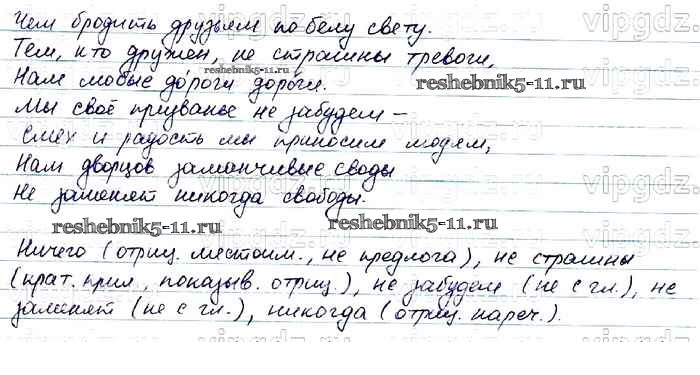 Чем бродить друзьям по белу свету.
Тем, кто дружен, не страшны тревоги,
Нам любые до́роги доро́ги.
Мы своё призванье не забудем –
Смех и радость мы приносим людям,
Нам дворцов заманчивые своды
Не заменят никогда свободы.
Ничего (отриц. местоим., не предлога), не страшны
(крат. прил., показыв. отриц.), не забудем (не с гл.), не
заменят (не с гл.), никогда (отриц. нареч.).
reshebnik5-11.ru
reshebnik5-11.ru
reshebnik5-11.ru
reshebnik5-11.ru
vipgdz.
vipgdz.
vipgdz.
vipgdz.
vipgdz.